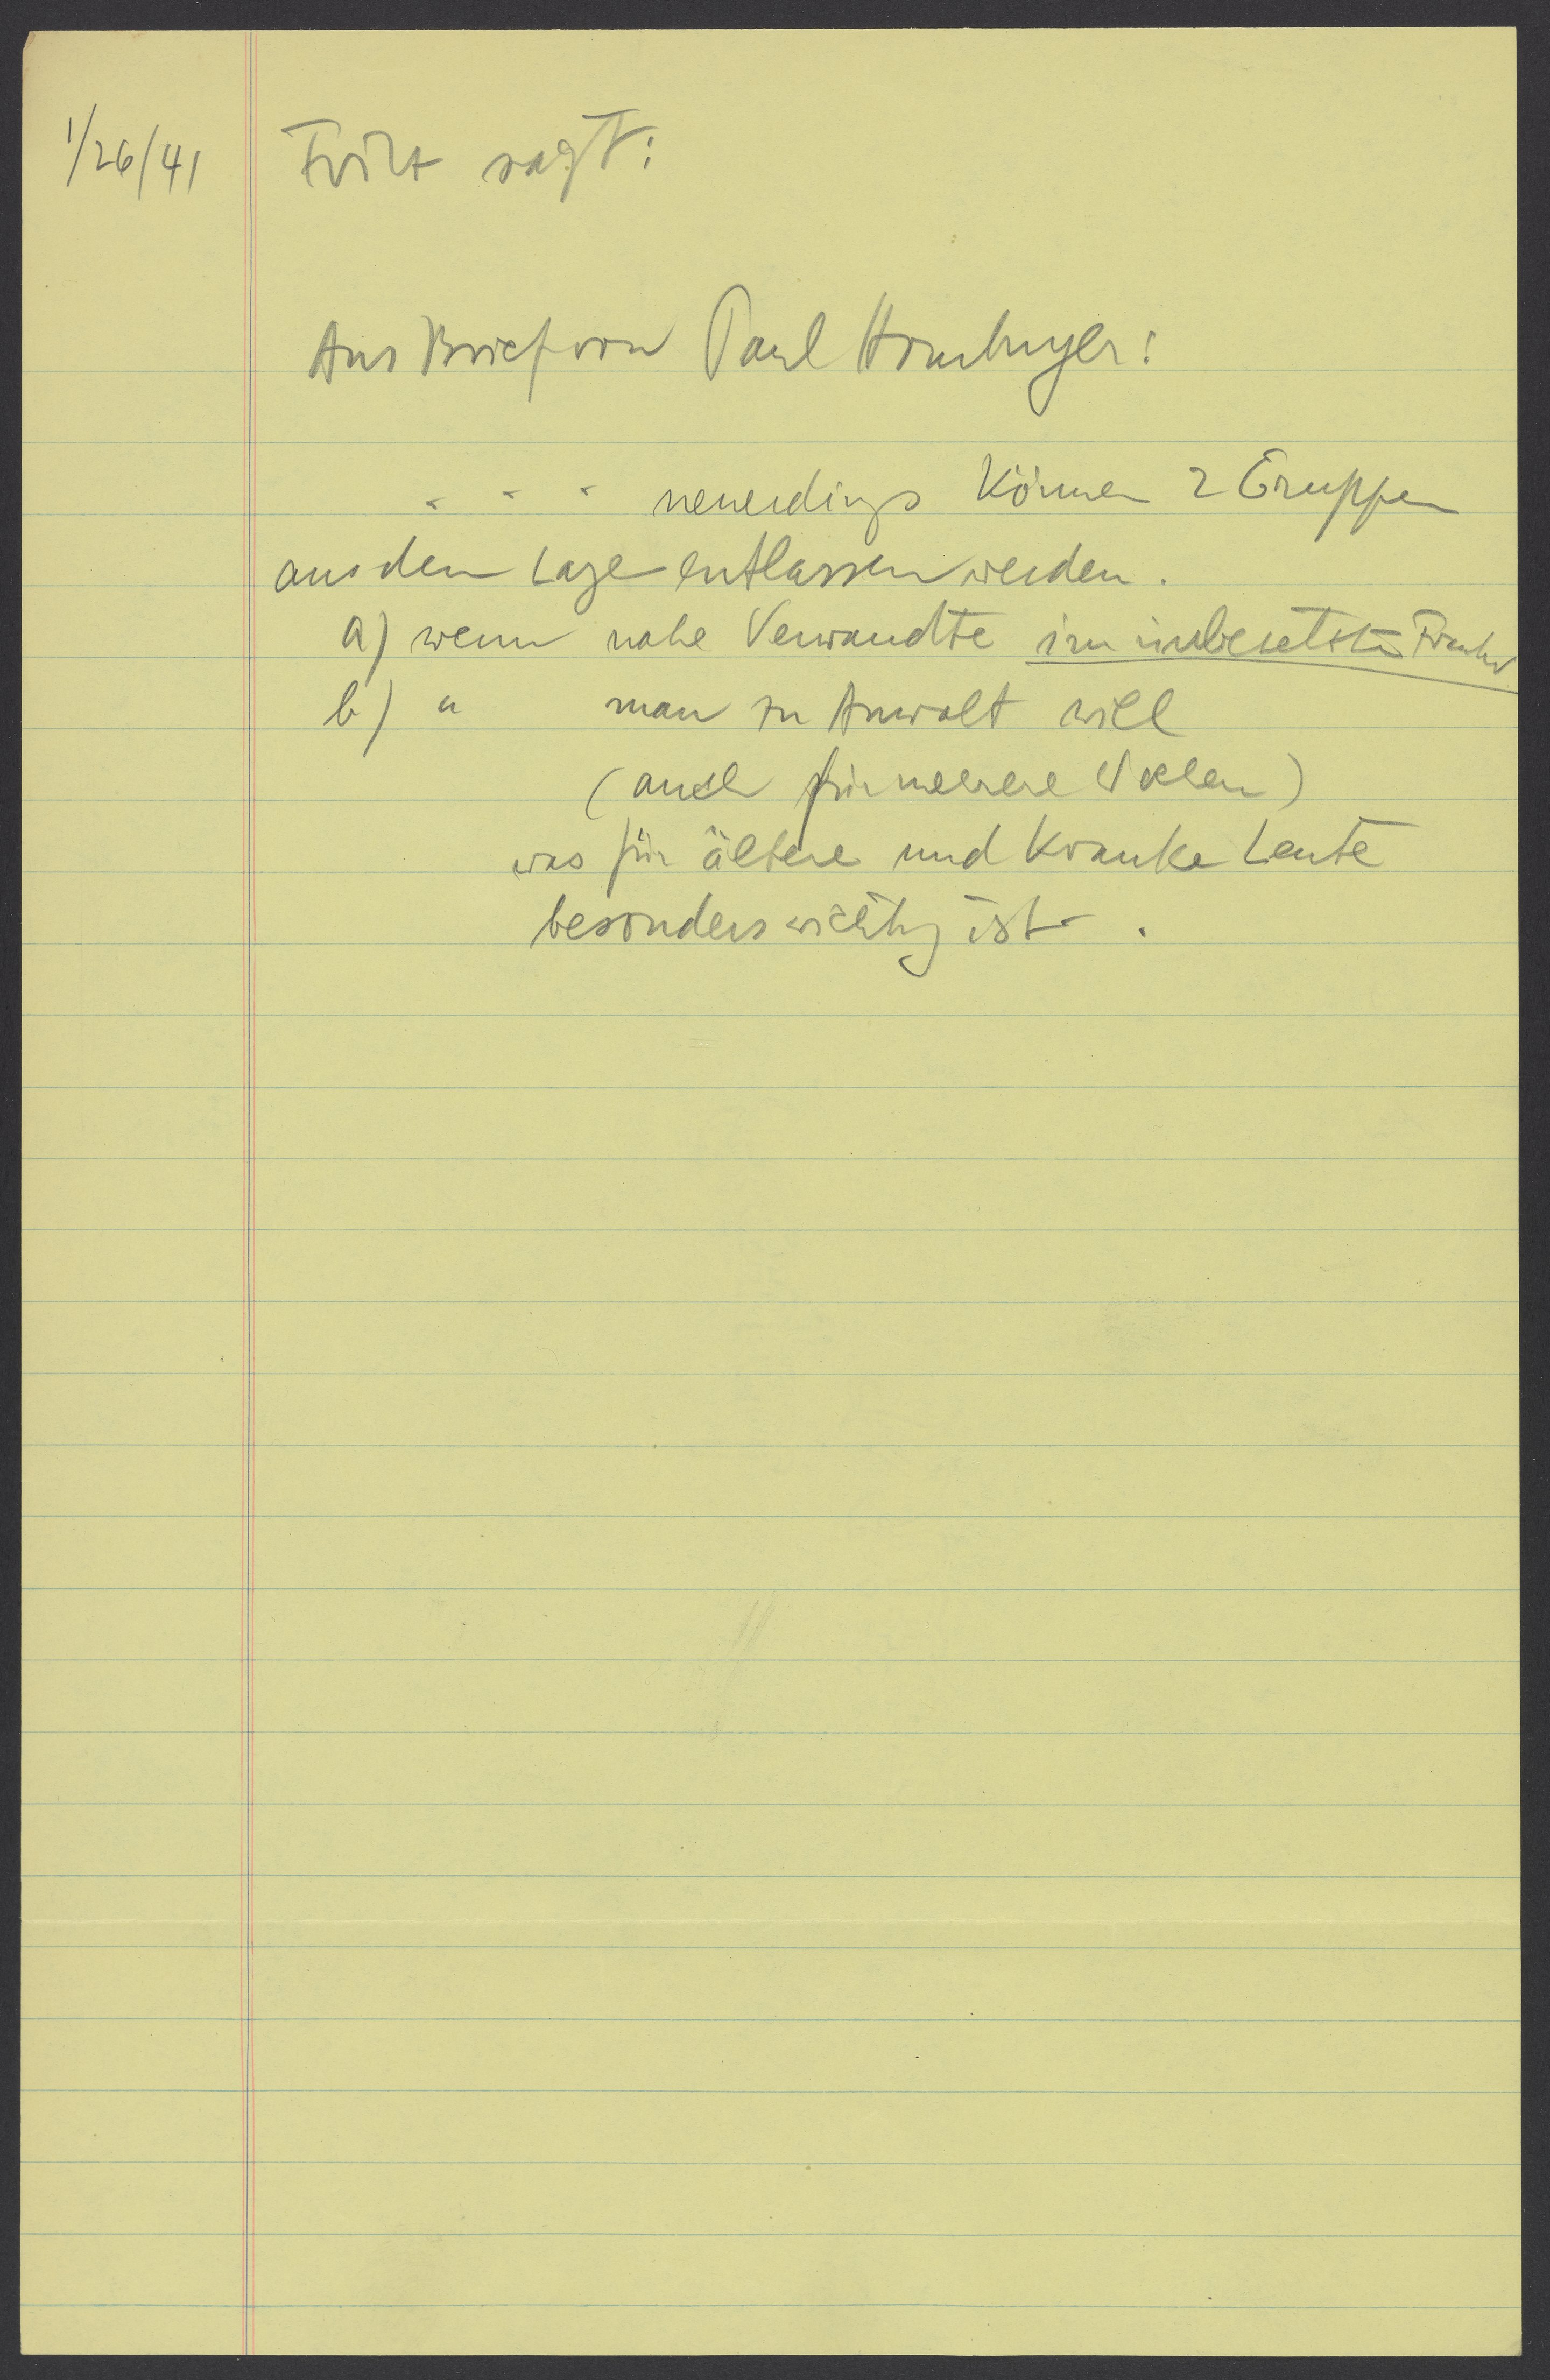 1/26/41 Fritz sagt:
Aus Brief von Paul Homburger:
. . . neuerdings können 2 Gruppen
aus dem Lager entlassen werden.
a) wenn nahe Verwandte im unbesetzten
b) " man zu Anwalt will
(auch für mehrere Wochen)
was für ältere und kranke Leute
besonders wichtig ist.